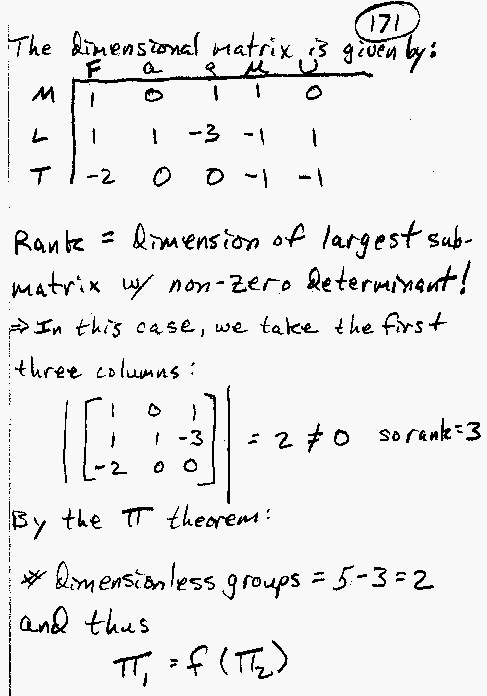 171
The dimensional matrix is given by:
F a ρ μ U
M 1 0 1 1 0
L 1 1 -3 -1 1
T -2 0 0 -1 -1
Rank = dimension of largest sub-
matrix w/ non-zero determinant!
⇒ In this case, we take the first
three columns:
1 0 1
1 1 -3 = 2 ≠ 0 so rank=3
-2 0 0
By the π theorem:
# dimensionless groups = 5-3=2
and thus
π₁ = f(π₂)